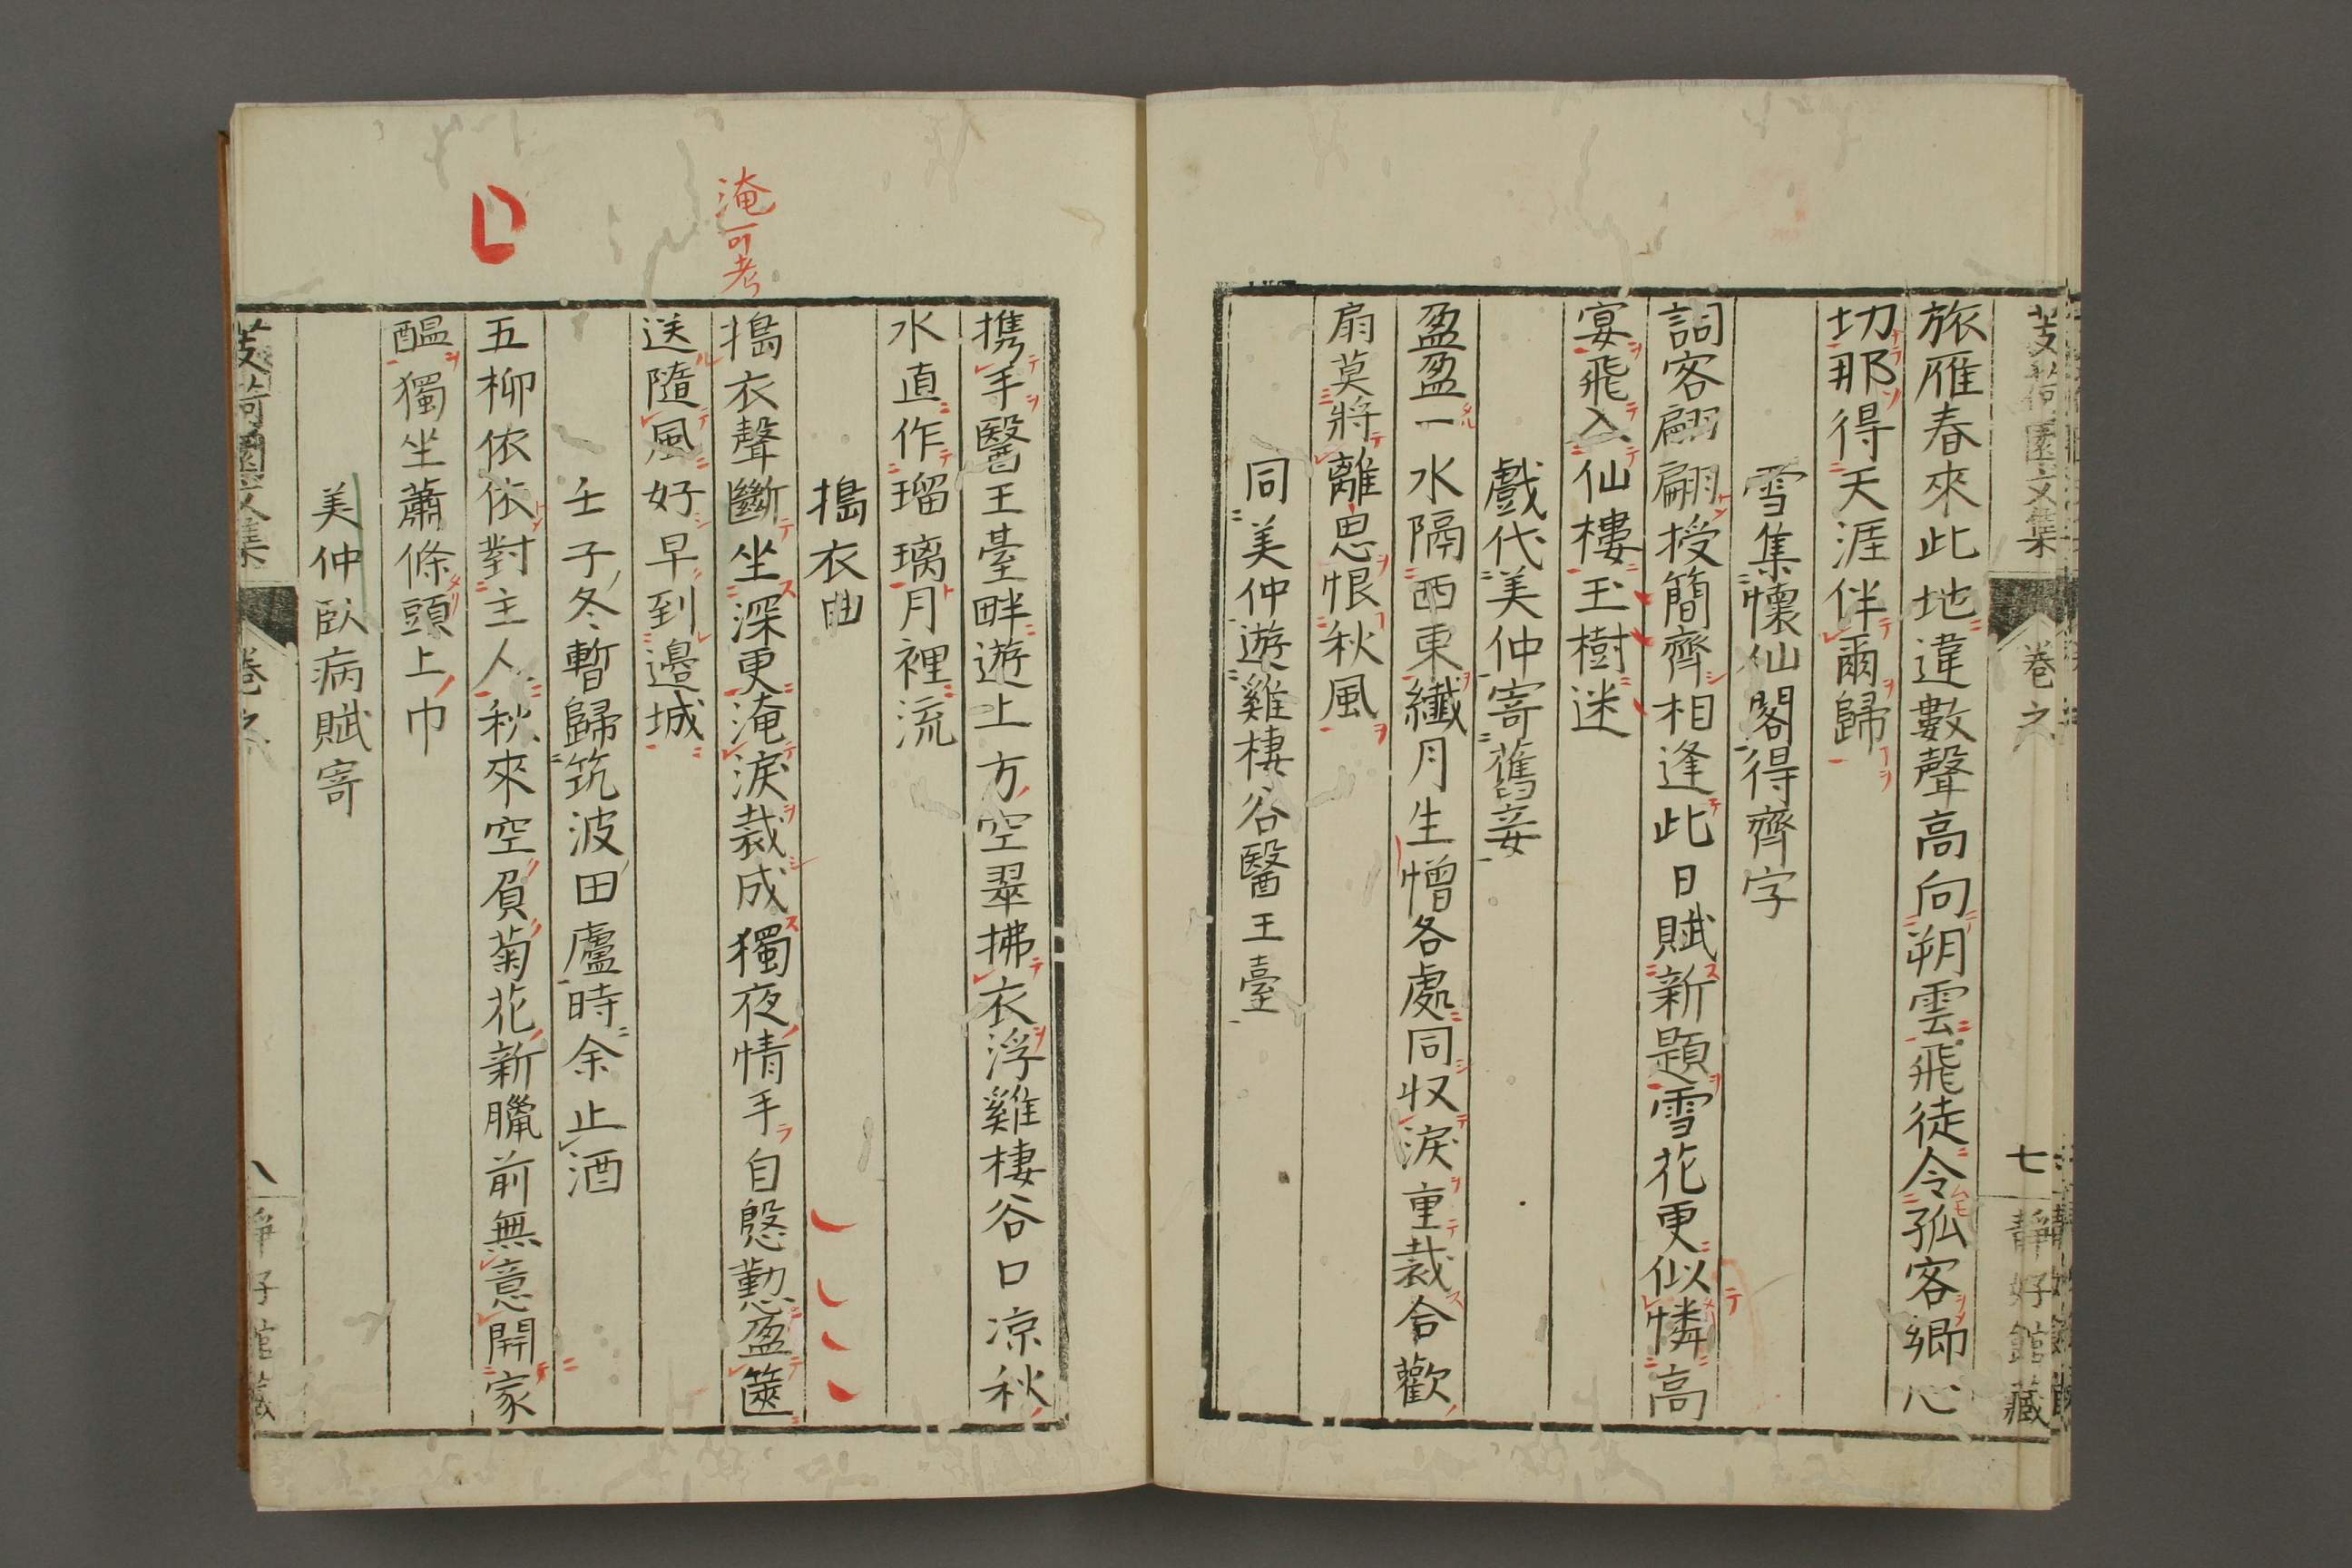 芰荷園文集
卷之
七
靜好館藏
旅雁春來此地違數聲高向朔雲飛徒令孤客鄉心
切那得天涯伴爾歸
雪集懷仙閣得齊字
詞客翩翩授簡齊相逢此日賦新題雪花更似憐高
宴飛入仙樓玉樹迷
戲代美仲寄舊妾
盈盈一水隔西東纖月生憎各處同収淚重裁合歡
扇莫將離思恨秋風
同美仲遊雞棲谷醫王臺
携手醫王臺畔遊上方空翠拂衣浮雞棲谷口凉秋
水直作瑠璃月裡流
搗衣曲
淹可考
搗衣聲斷坐深更淹淚裁成獨夜情手自慇懃盈篋
送隨風好早到邊城
壬子冬暫歸筑波田廬時余止酒
五柳依依對主人秋來空負菊花新臘前無意開家
醞獨坐蕭條頭上巾
美仲臥病賦寄
芰荷園文集
卷之
八
靜好館藏